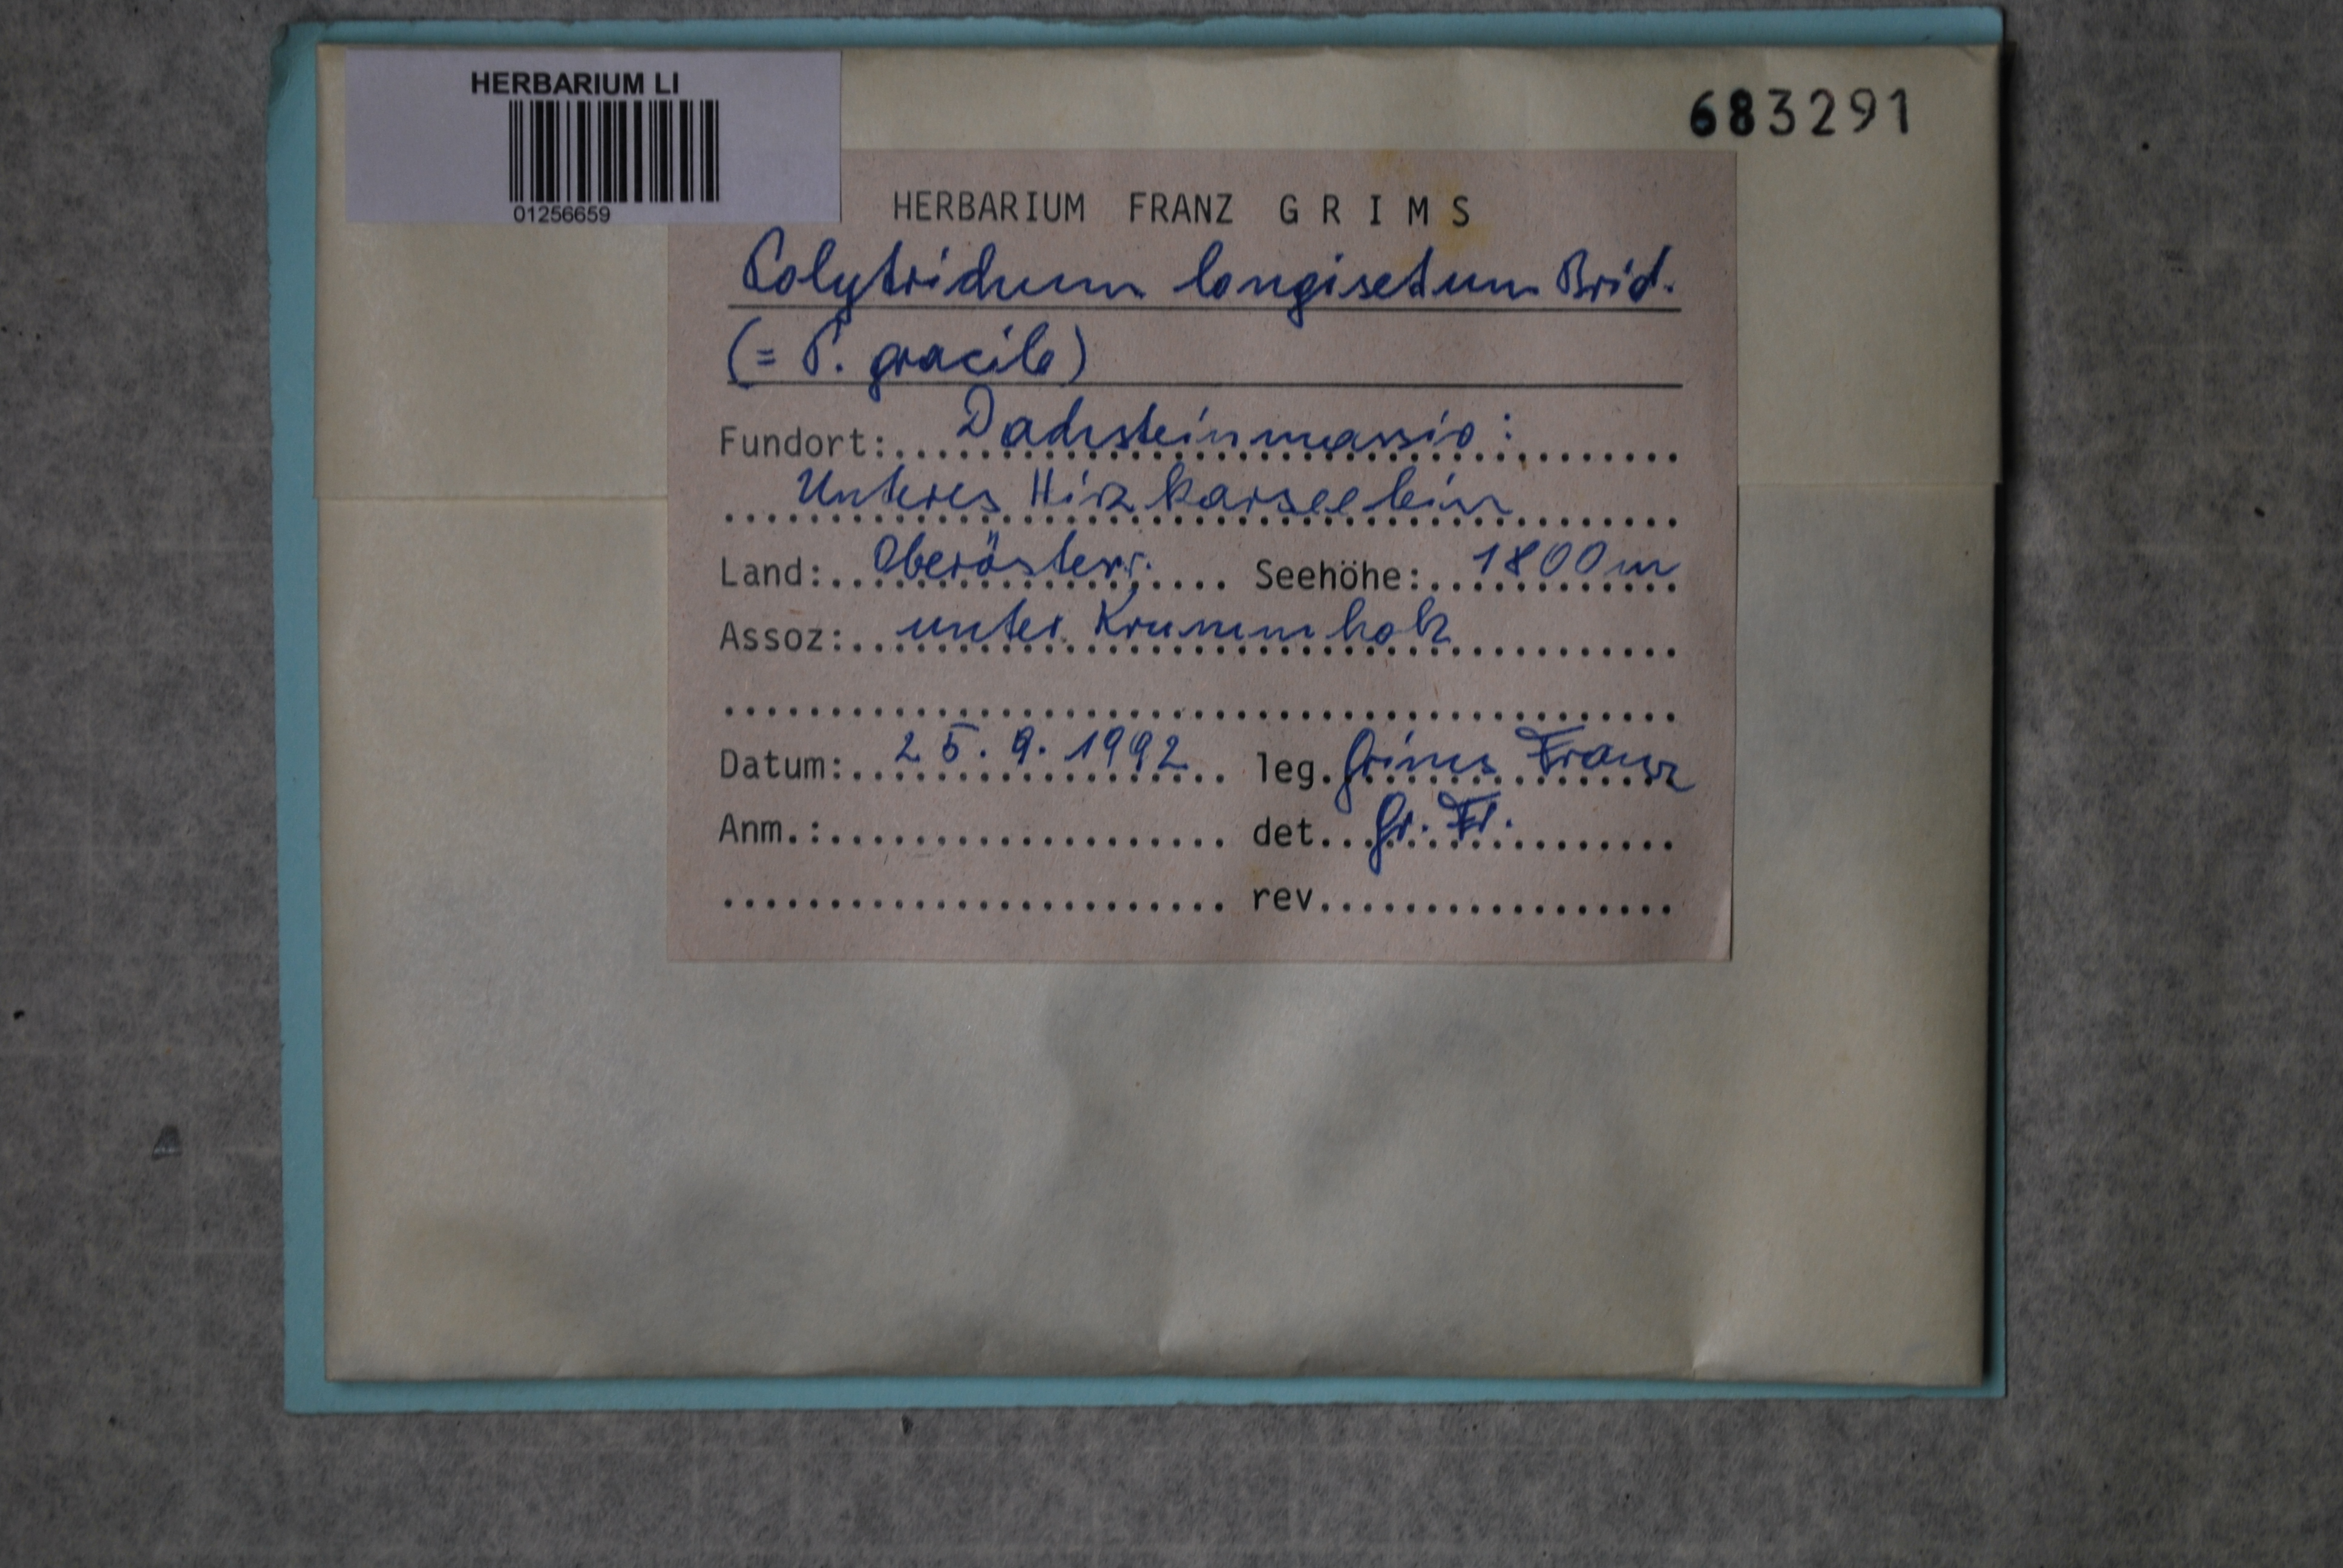 HERBARIUM LI
01256659
683291
HERBARIUM FRANZ G R I M S
Polytrichum longisetum Brid.
(= P. gracile)
Fundort: Dachsteinmassiv:
Unteres Hirzkarseelein
Land: Oberösterr. Seehöhe: 1800 m
Assoz: unter Krummholz
Datum: 25. 9. 1992 leg. Grims Franz
Anm.: det. Gr. Fr.
rev.